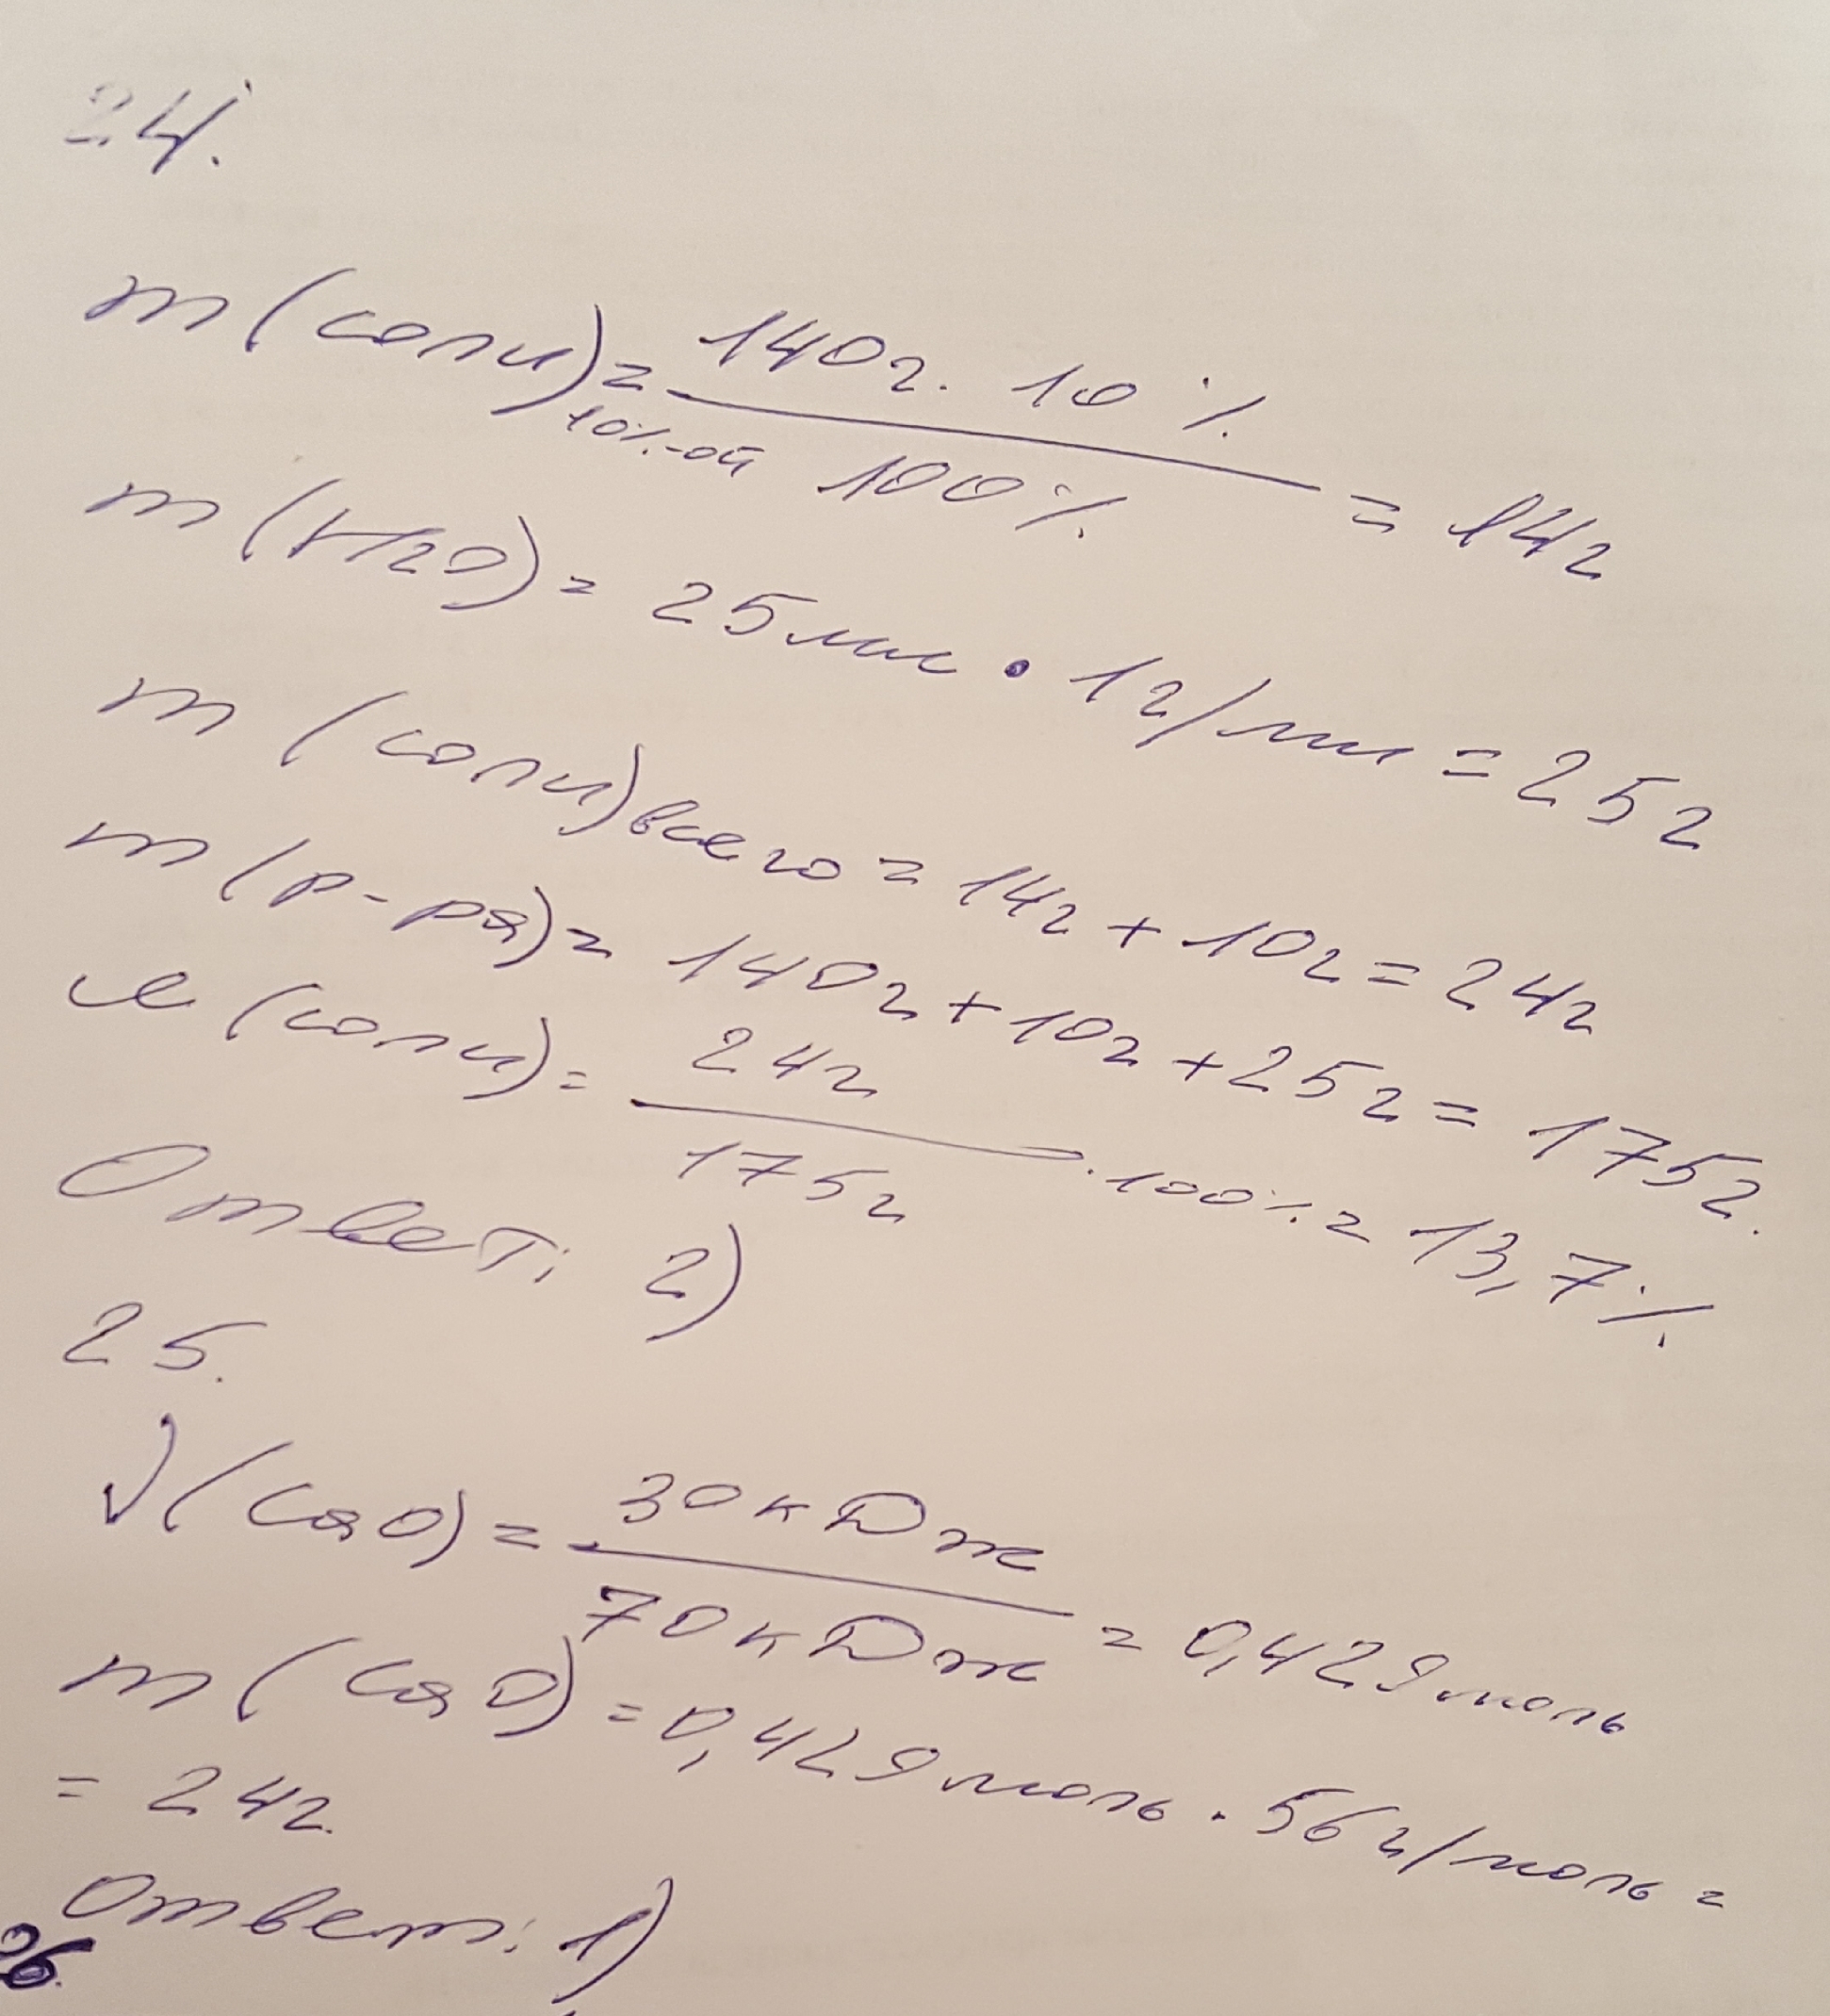 24.
m(соли)10%-ой = 140г. 10% / 100% = 14г
m(H2O) = 25мл • 1г/мл = 25г
m(соли)всего = 14г + 10г = 24г
m(р-ра) = 140г + 10г + 25г = 175г.
ω(соли) = 24г / 175г · 100% = 13,7%
Ответ: 2)
25.
ν(CaO) = 30кДж / 70кДж = 0,429моль
m(CaO) = 0,429моль · 56г/моль =
= 24г.
Ответ: 1)
26.